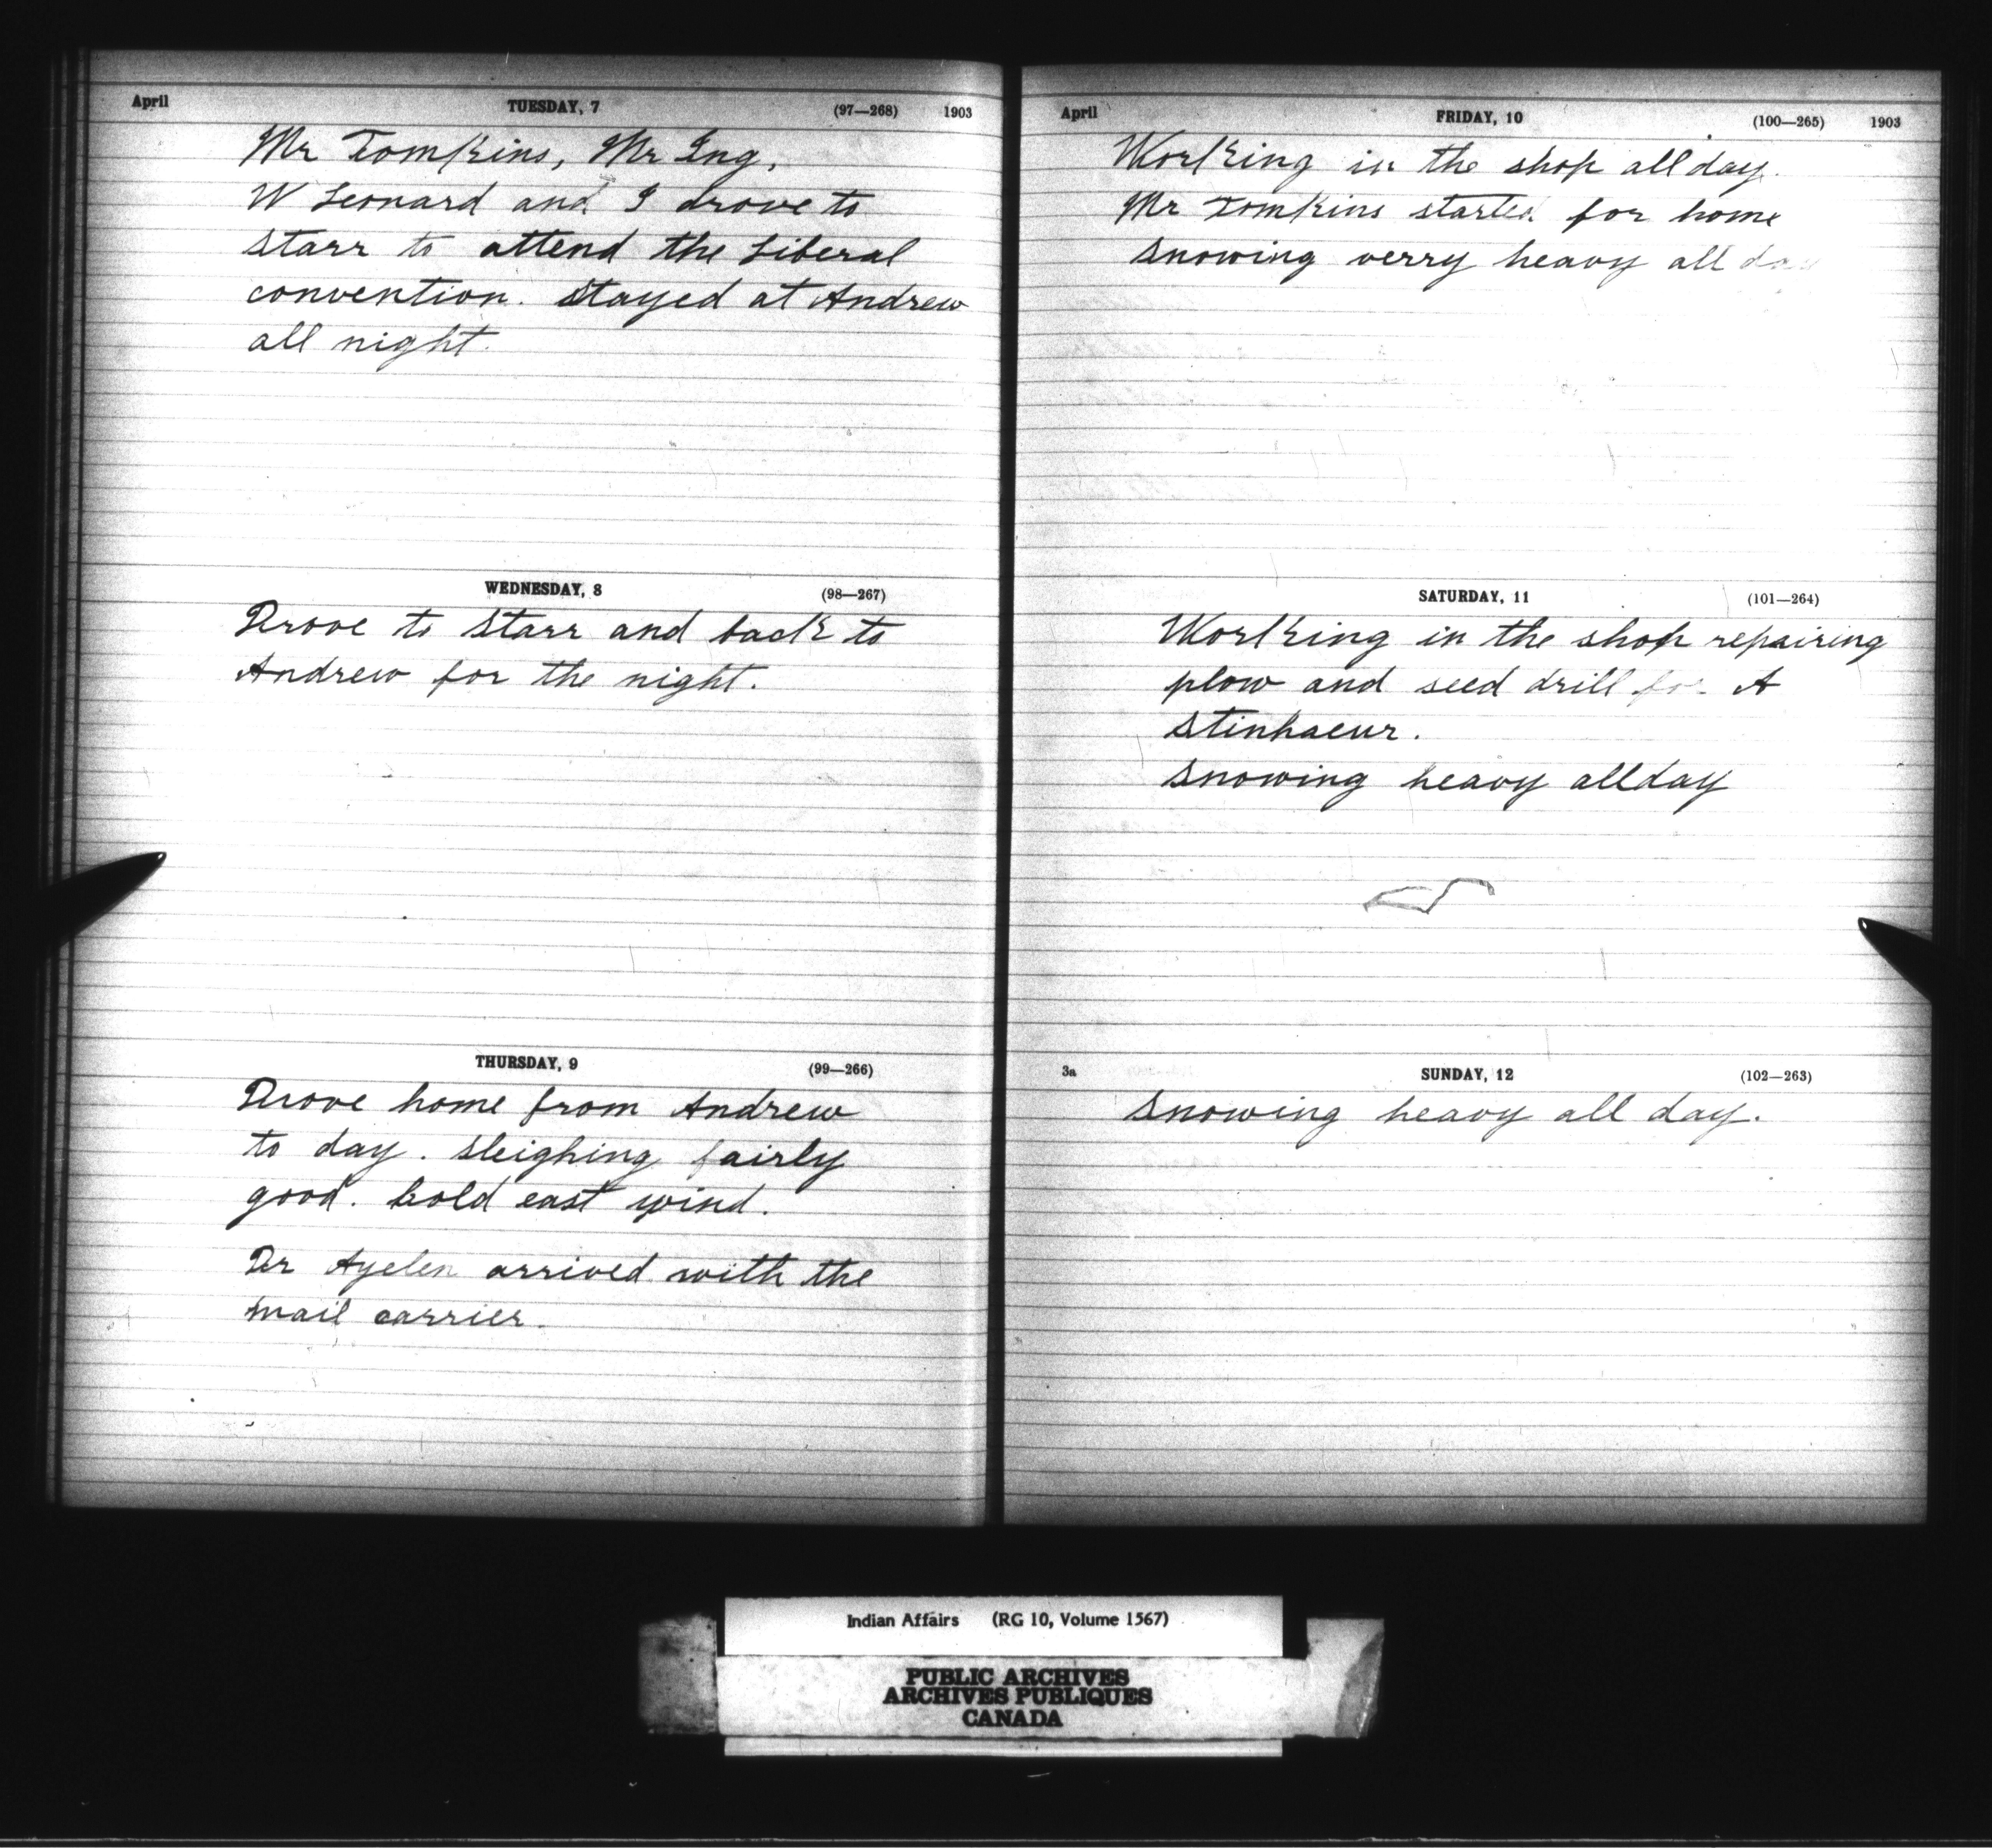 April TUESDAY, 7 (97—268) 1903
Mr Tomkins, Mr Ing,
W Leonard and I drove to
Starr to attend the Liberal
convention. Stayed at Andrew
all night.
WEDNESDAY, 8 (98—267)
Drove to Starr and back to
Andrew for the night.
THURSDAY, 9 (99—266)
Drove home from Andrew
to day. Sleighing fairly
good. Cold east wind.
Dr Ayelen arrived with the
mail carrier.
April FRIDAY, 10 (100—265) 1903
Working in the shop all day.
Mr Tomkins started for home
Snowing verry heavy all day
SATURDAY, 11 (101—264)
Working in the shop repairing
plow and seed drill for A
Stinhaeur.
Snowing heavy all day
3a SUNDAY, 12 (102—263)
Snowing heavy all day.
Indian Affairs (RG 10, Volume 1567)
PUBLIC ARCHIVES
ARCHIVES PUBLIQUES
CANADA